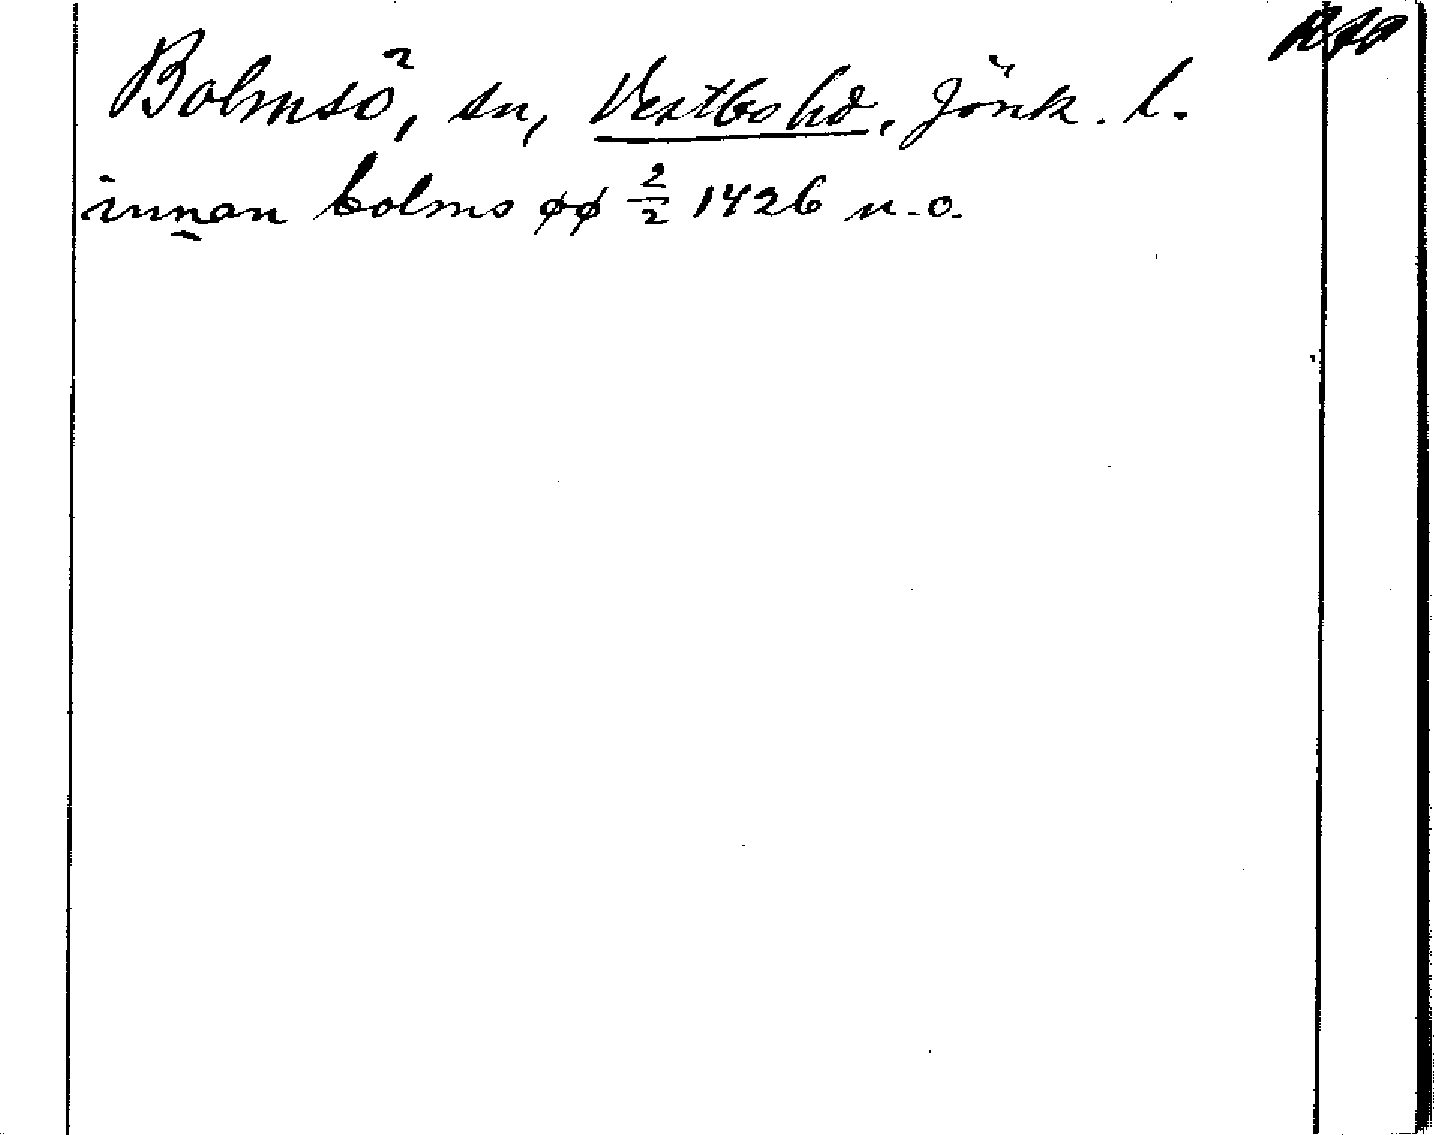 Bolmsö, sn, Vestbo hd. Jönk. l.
innan bolms øø 2/2 1426 n.o.